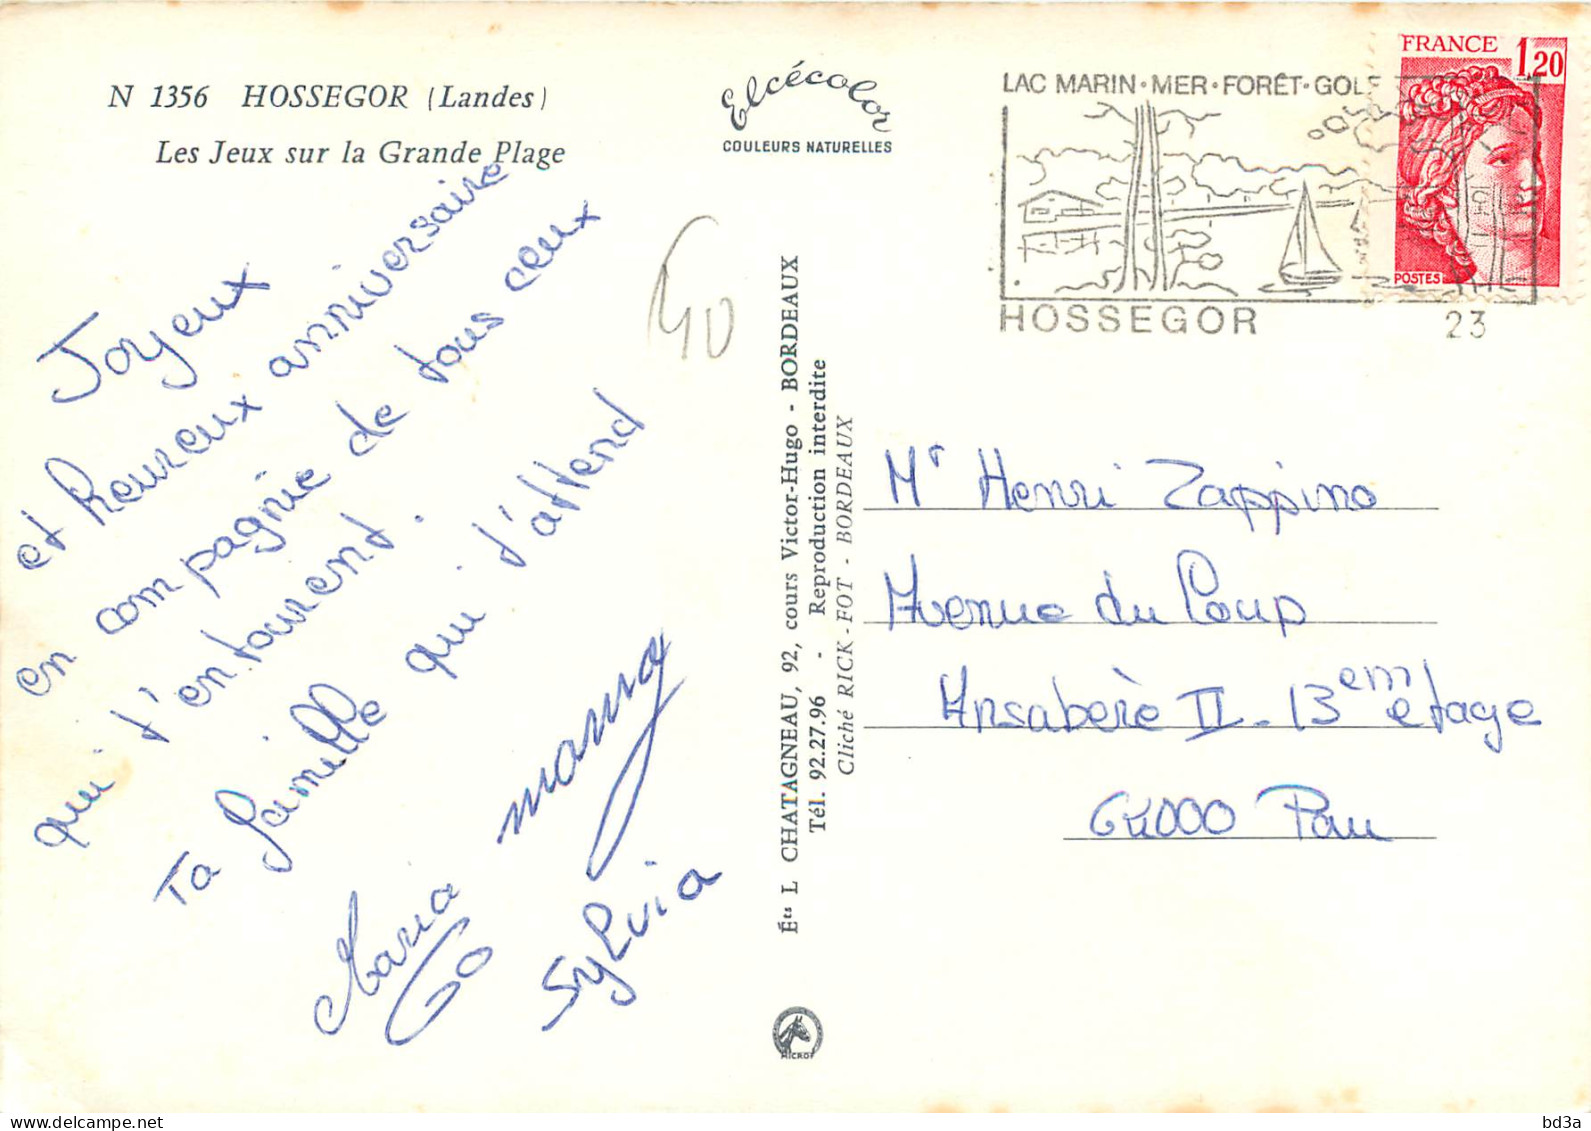 N 1356 HOSSEGOR (Landes)
Les Jeux sur la Grande Plage
Elcécolor
COULEURS NATURELLES
LAC MARIN·MER·FORÊT·GOLF
HOSSEGOR
23
FRANCE
1,20
POSTES
Joyeux
et heureux anniversaire
en compagnie de tous ceux
qui t'entourent.
Ta famille qui t'attend
Maria
mamy
Sylvia
Éts L CHATAGNEAU, 92, cours Victor-Hugo - BORDEAUX
Tél. 92.27.96 - Reproduction interdite
Cliché RICK-FOT - BORDEAUX
Mr Henri Zappino
Avenue du Loup
Ansabère II - 13em étage
64000 Pau
bd3a